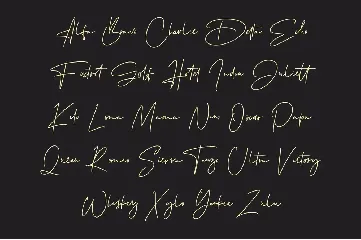 Alfa Bravo Charlie Delta Echo
Foxtrot Golf Hotel India Juliett
Kilo Lima Mama Nov Oscar Papa
Queen Romeo Sierra Tango Ultra Victory
Whiskey Xylo Yankee Zulu